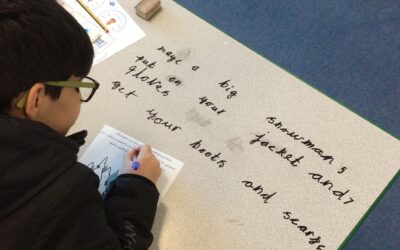 mage a big snowman,s
tub on your jacket and,
gloves
get your boots and scarfs